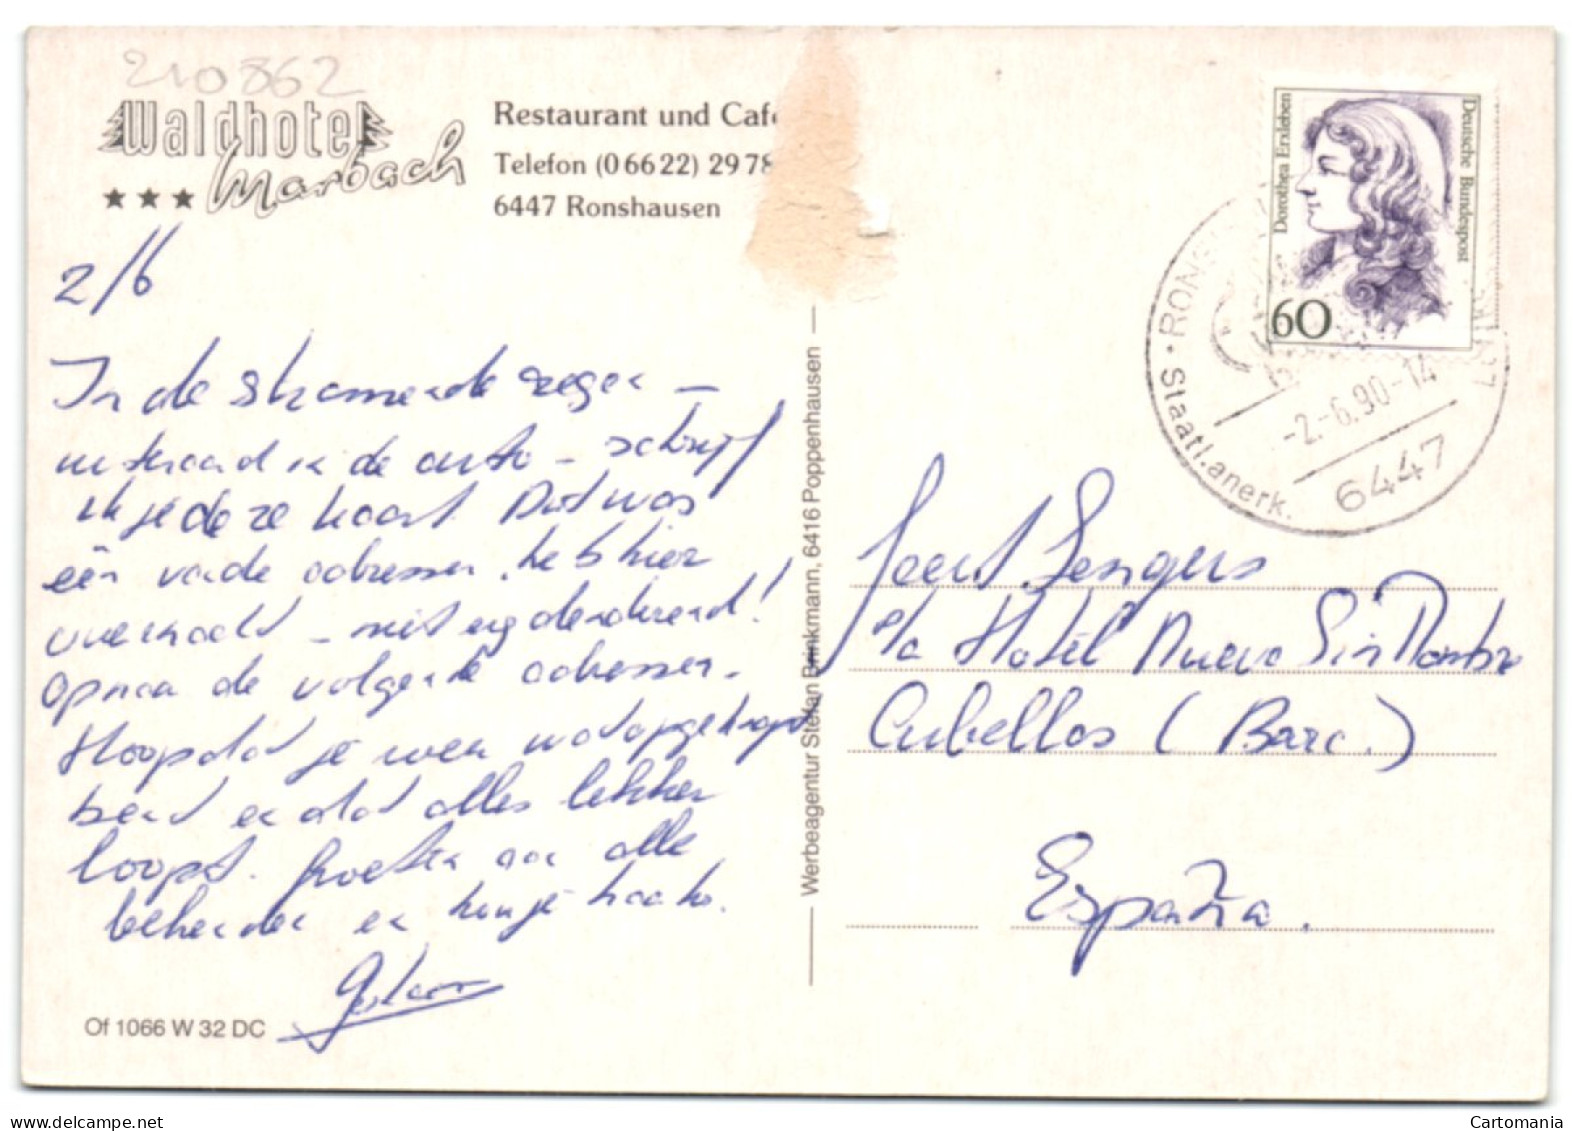 210862
Waldhotel
Marbach
Restaurant und Caf
Telefon (0 66 22) 29 78
6447 Ronshausen
2/6
In de stromende regen -
uiteraard in de auto - schrijf
ik je deze kaart. Dit was
één van de adressen, heb hier
overnacht - niet erg denderend!
Op naar de volgende adressen.
Hoop dat je weer wat opgeknapt
bent en dat alles lekker
loopt. Groeten aan alle
bekenden en
Of 1066 W 32 DC
Werbeagentur Stefan Brinkmann, 6416 Poppenhausen
Dorothea Erxleben
Deutsche Bundespost
60
RONS
Staatl. anerk.
-2.-6.90-14
6447
Geert Sengers
p/a Hotel Nueva Sin
Cubellas (Barc.)
España.
Cartomania